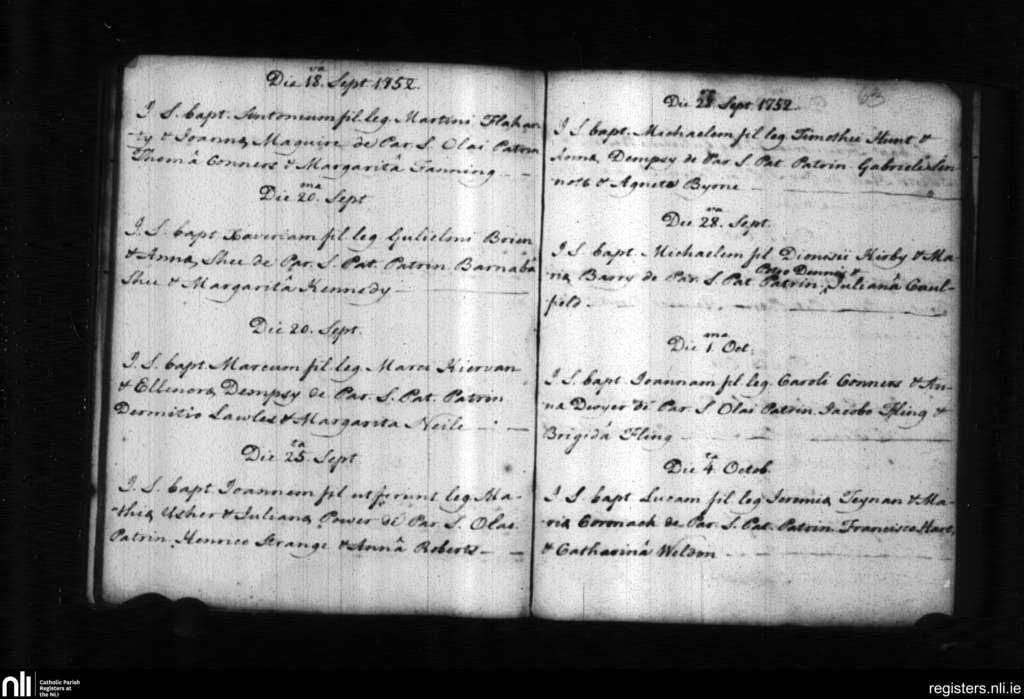 Die 18.va Sept 1752.
I S. bapt. Antonium fil leg Martini Flahar-
ty & Joannæ Maguire de Par S. Olai Patrin
Thomâ Conners & Margaritâ Fanning
Die 20.ma Sept
I. S. bapt Xaveriam fil leg Gulielmi Brien
& Annæ Shee de Par. S. Pat. Patrin Barnabâ
Shee & Margaritâ Kennedy
Die 20. Sept.
I. S. bapt. Marcum fil leg. Marci Kiervan
& Ellenoræ Dempsy de Par. S. Pat. Patrin
Dermitio Lawles & Margarita Neile
Die 25.ta Sept
I. S. bapt Joannem fil ut ferunt leg Ma-
thiæ Usher & Julianæ Power de Par S. Olai
Patrin Henrico Strange & Annâ Roberts
63
Die Sept. 1752.
I S bapt. Michaelem fil leg Timothei Hunt &
Annæ Dempsy de Par S. Pat Patrin Gabriele Sin-
nott & Agneta Byrne
Die 28.va Sept.
I S bapt. Michaelem fil Dionisii Kirby & Ma-
riæ Barry de Par. S. Pat Patrin. Petro Dennis & Julianâ Caul-
field
Die 1.ma Oct:
I. S. bapt. Joannam fil leg. Caroli Conners & An-
na Dwyer de Par. S Olai Patrin Jacobo Fling &
Brigidâ Fling
Die 4.ta Octob
I S bapt Lucam fil leg Jeremiæ Teynan & Ma-
riæ Cormack de Par. S. Pat. Patrin Francisco Hart,
& Catharinâ Weldon
nli
Catholic Parish
Registers at
the NLI
registers.nli.ie